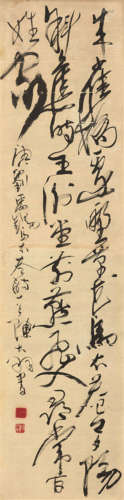 朱雀橋邊野草花烏衣巷口夕陽
斜舊時王謝堂前燕飛入尋常百
姓家
唐劉禹錫烏衣巷詩 陳大羽書